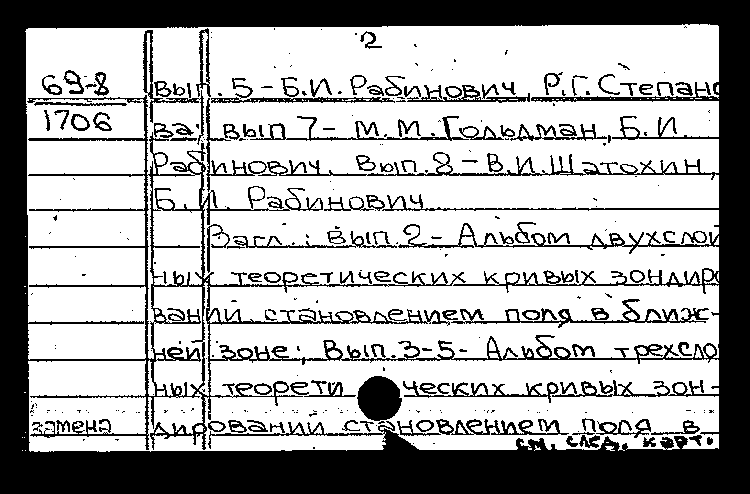 2
69-8 Вып. 5 - Б.И. Рабинович, Р.Г. Степано
1706 ва; вып 7 - М.М. Гольдман, Б.И.
Рабинович. Вып. 8 - В.И. Шатохин,
Б.И. Рабинович
Загл.: Вып. 2 - Альбом двухслой
ных теоретических кривых зондиро
ваний становлением поля в ближ-
ней зоне; Вып. 3-5 - Альбом трехсло
ных теоретических кривых зон-
замена дирований становлением поля в
см. след. карт.